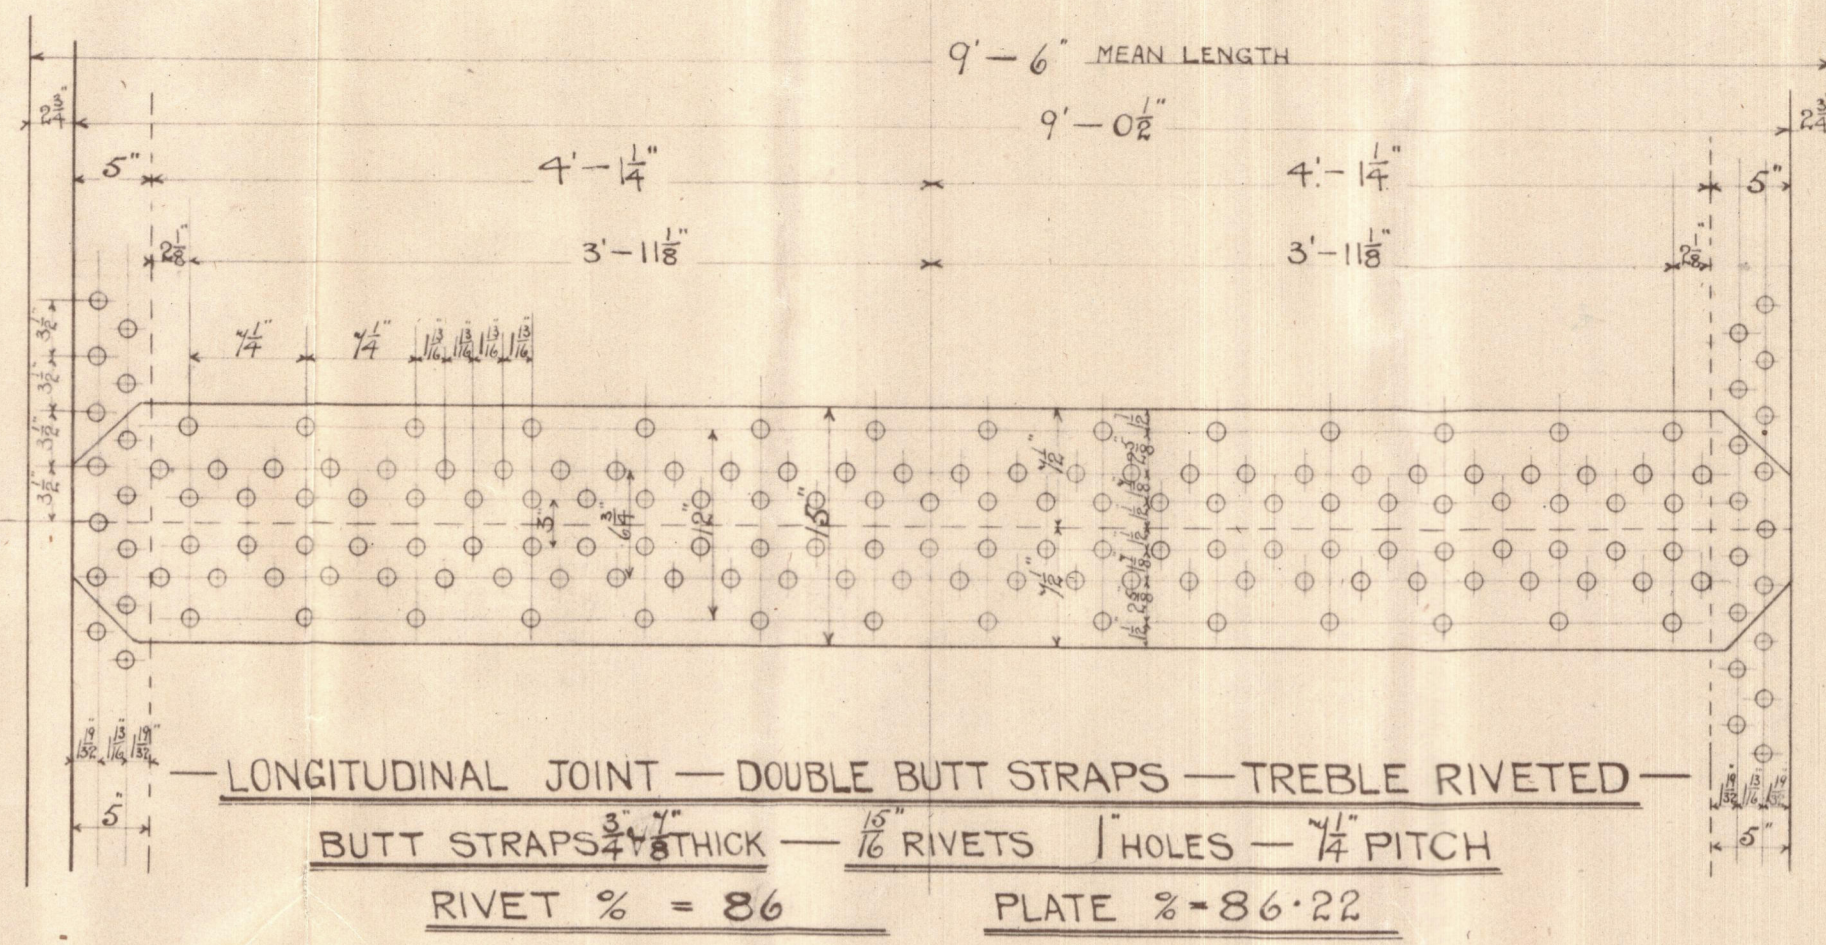 9' — 6" MEAN LENGTH
2 3/4" 9' — 0 1/2" 2 3/4
5" 4' — 1 1/4" 4' — 1 1/4" 5"
2 1/8" 3' — 11 1/8" 3' — 11 1/8" 2 1/8"
7 1/4" 7 1/4" 1 13/16 1 13/16 1 13/16 1 13/16"
3 1/2" 3 1/2" 3 1/2" 3 1/2"
3" 6 3/4" 12" 15" 7 1/2" 7 1/2"
1 1/2 2 5/8 1 7/8 1 1/2 1 1/2 1 7/8 2 5/8 1 1/2
1 19/32" 1 13/16" 1 19/32" 1 19/32" 1 13/16" 1 19/32"
5" 5"
— LONGITUDINAL JOINT — DOUBLE BUTT STRAPS — TREBLE RIVETED —
BUTT STRAPS 3/4" & 7/8" THICK — 15/16" RIVETS 1" HOLES — 7 1/4" PITCH
RIVET % = 86 PLATE % = 86·22